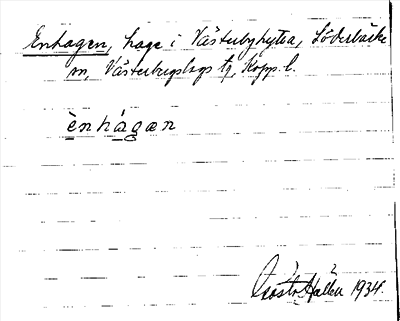 Enhagen, hage i Västerbyhytta, Söderbärke
sn, Västerbergslags tg, Kopp. l.
ènhágæn
Gösta Hallén 1934.